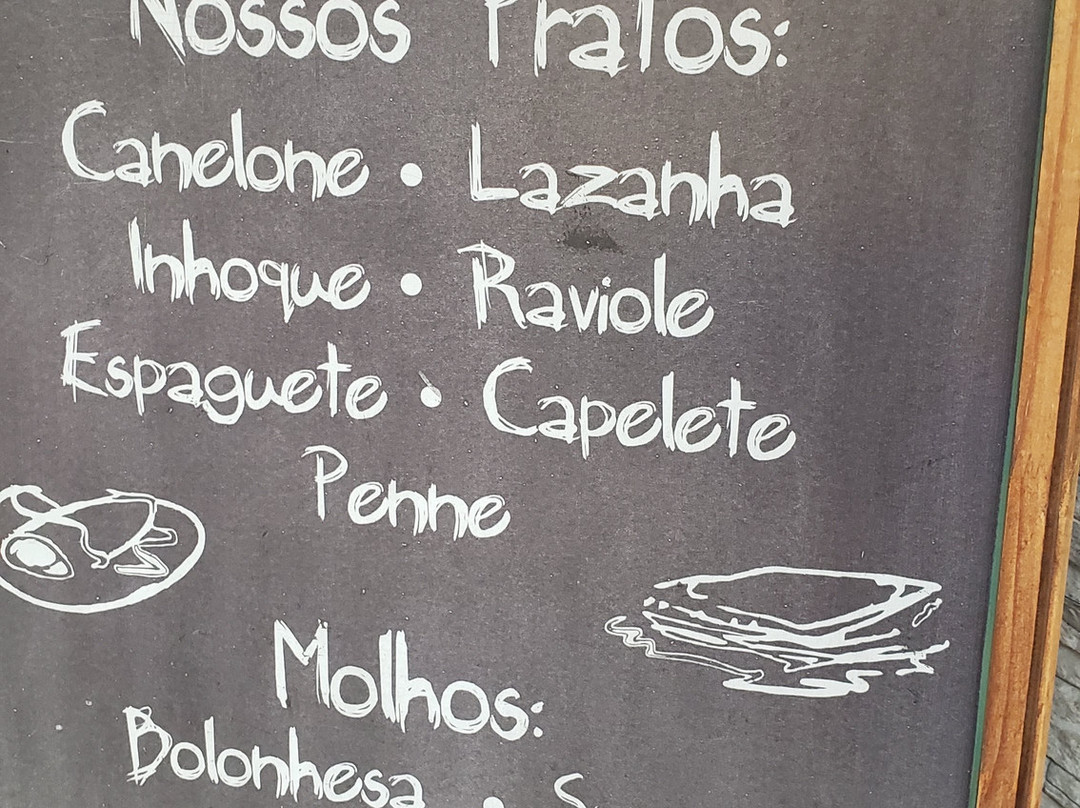 Nossos Pratos:
Canelone • Lazanha
Inhoque • Raviole
Espaguete • Capelete
Penne
Molhos:
Bolonhesa •